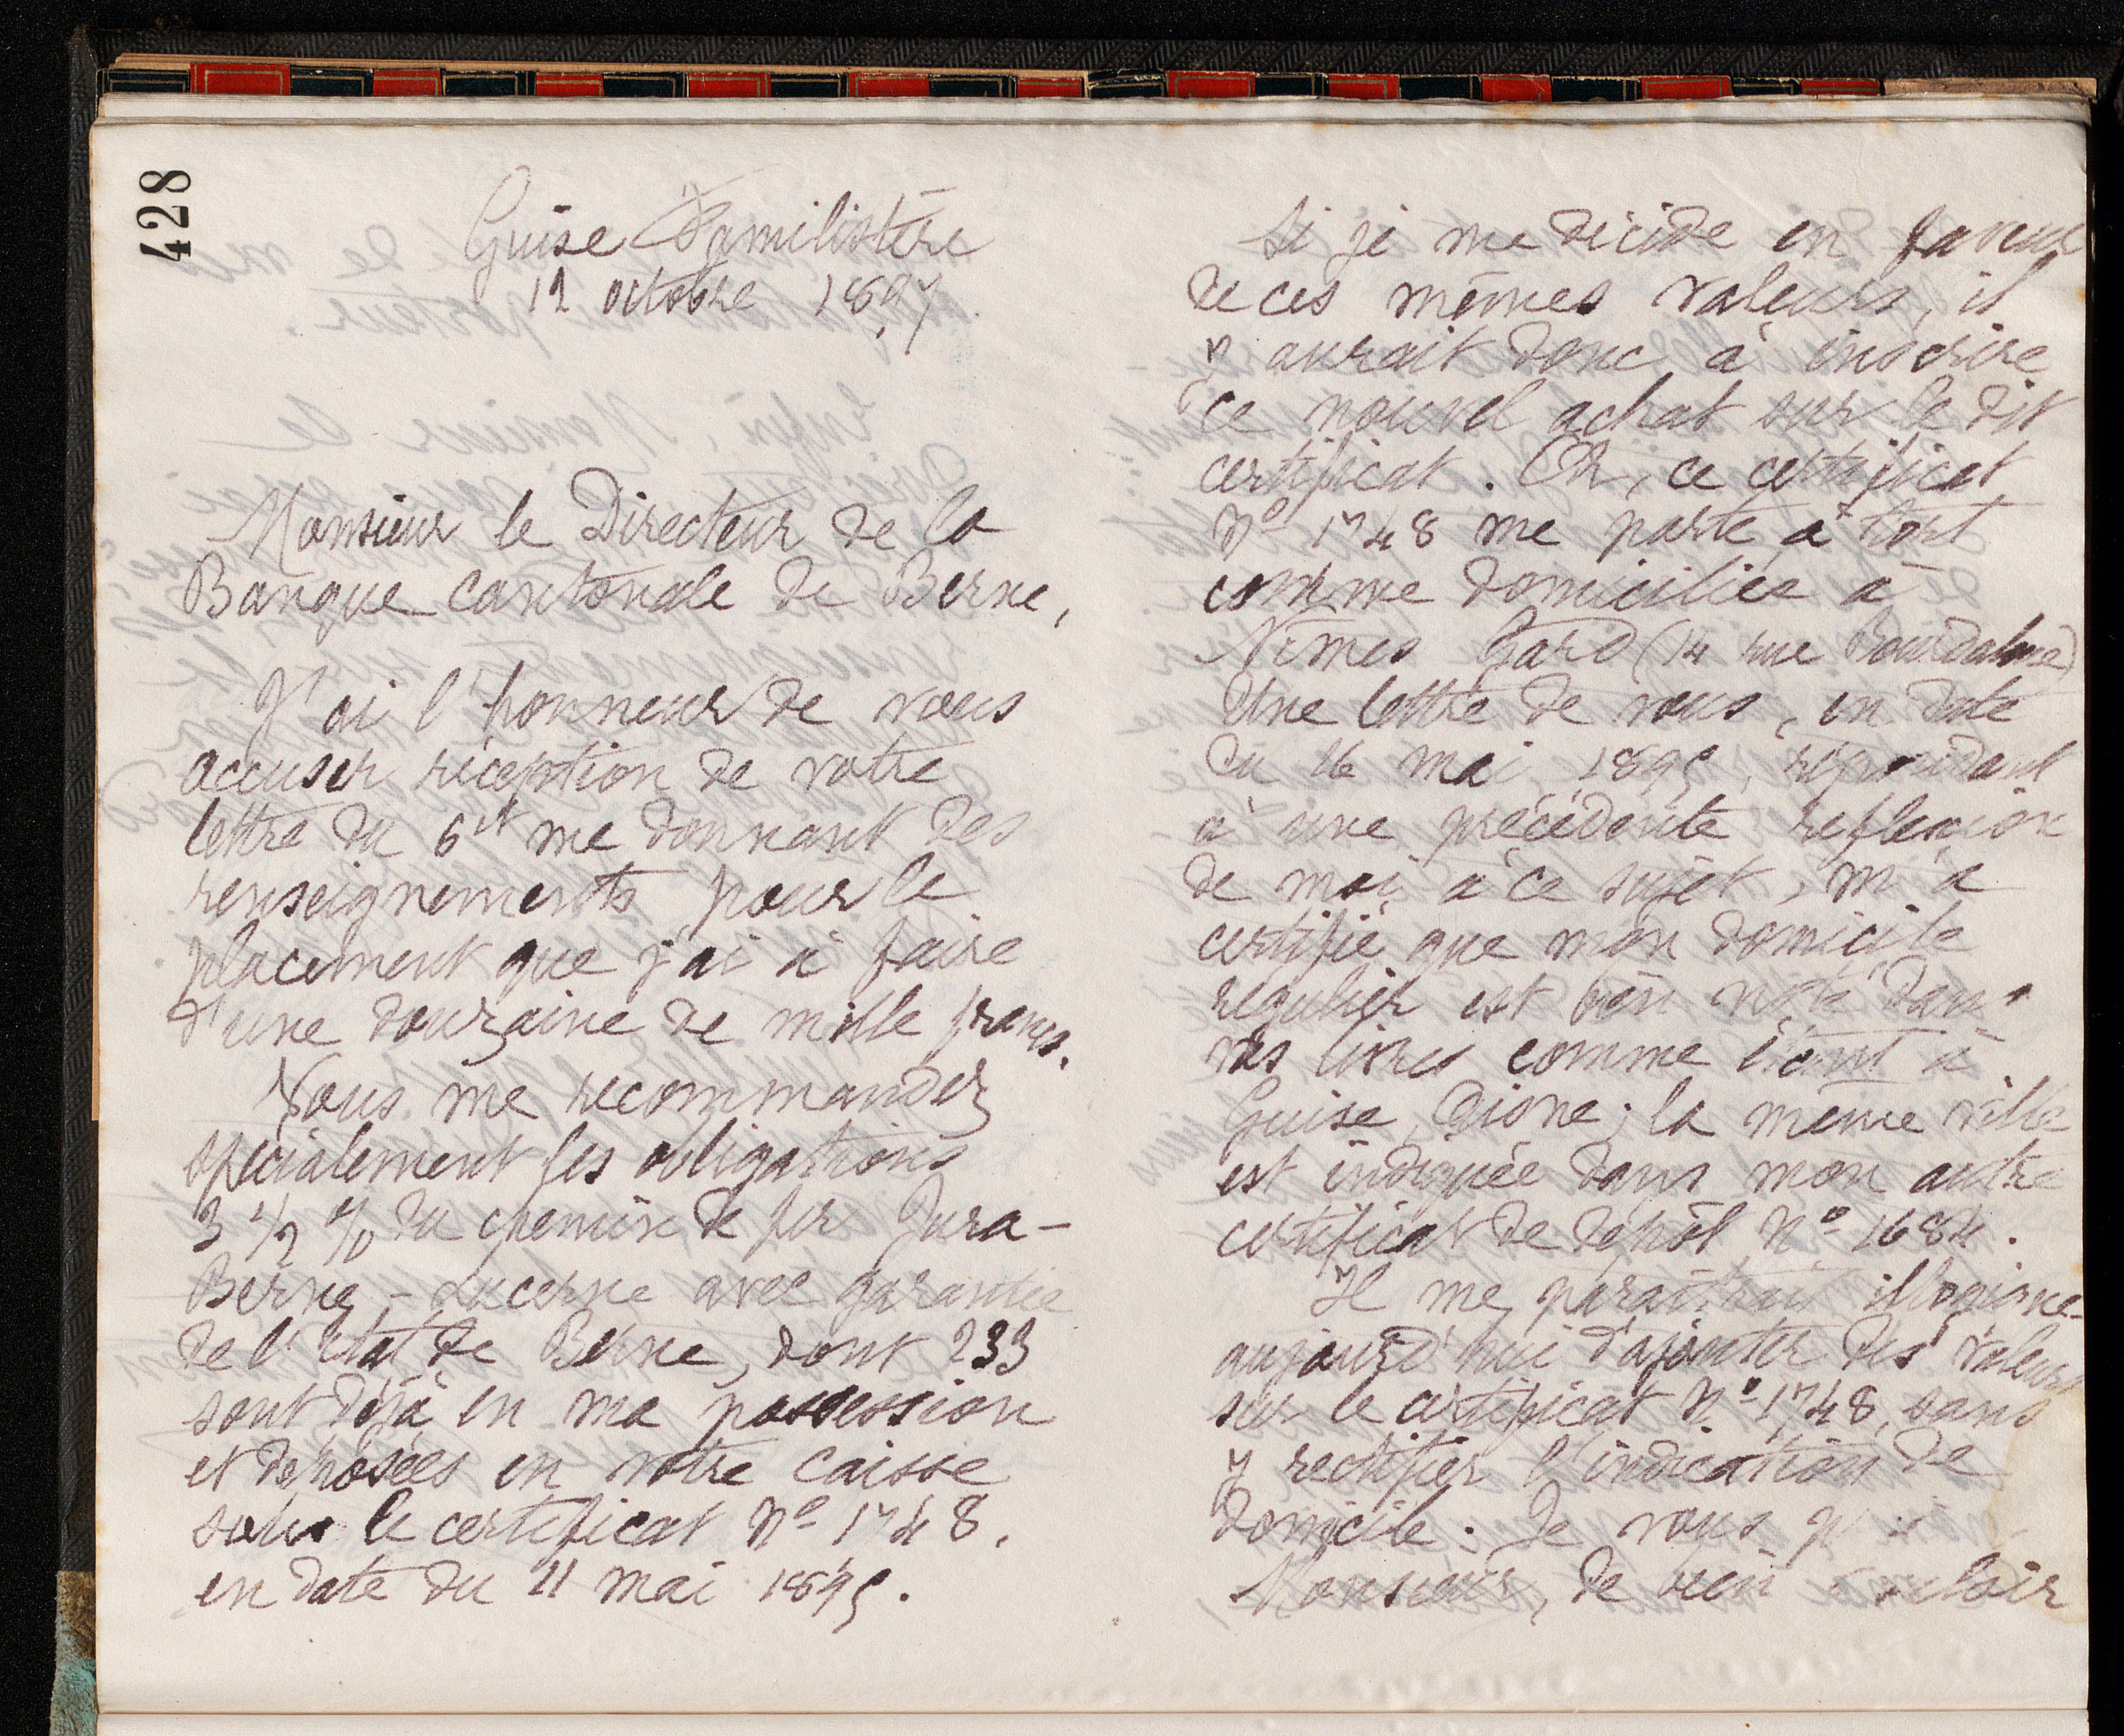 428
Guise Familistère
12 octobre 1897
Monsieur le Directeur de la
Banque cantonale de Berne,
J'ai l'honneur de vous
accuser réception de votre
lettre du 6 ct me donnant des
renseignements pour le
placement que j'ai à faire
d'une douzaine de mille francs.
Vous me recommandez
spécialement les obligations
3 1/2 % du chemin de fer Jura-
Berne-Lucerne avec garantie
de l'Etat de Berne, dont 233
sont déjà en ma possession
et déposées en votre caisse
sous le certificat No 1748.
en date du 11 mai 1895.
Si je me décide en faveur
de ces mêmes valeurs, il
y aurait donc à inscrire
ce nouvel achat sur le dit
certificat. Or, ce certificat
No 1748 me porte à tort
comme domiciliée à
Nîmes Gard (14 rue Bourdaloue)
Une lettre de vous, en date
du 16 mai 1895, répondant
à une précédente reflexion
de moi à ce sujet, m'a
certifié que mon domicile
régulier est bien noté dans
vos livres comme étant à
Guise, Aisne; la même ville
est indiquée dans mon autre
certificat de dépôt No 1684.
Il me paraîtrait illogique
aujourd'hui d'ajouter des valeurs
sur le certificat No 1748, sans
y rectifier l'indication de
domicile. Je vous
Monsieur, de bien vouloir